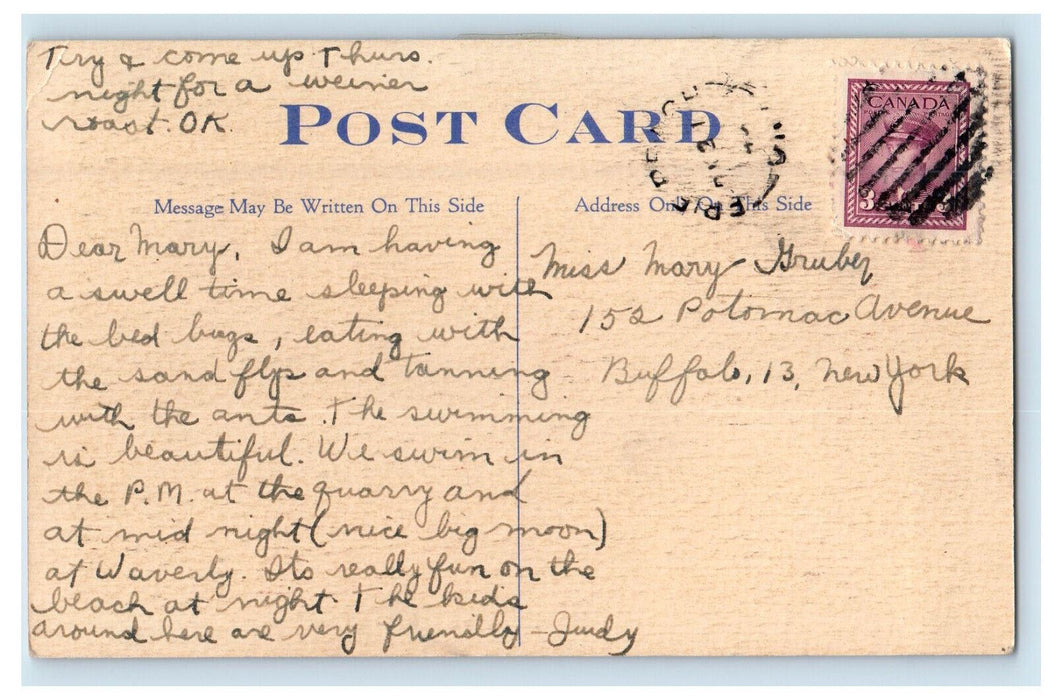 Try & come up Thurs.
night for a weiner
roast. OK.
POST CARD
Message May Be Written On This Side
Address Only On This Side
CANADA
3
ERIE BEACH
Dear Mary, I am having
a swell time sleeping with
the bed bugs, eating with
the sand flys and tanning
with the ants. The swimming
is beautiful. We swim in
the P.M. at the quarry and
at mid night (nice big moon)
at Waverly. Its really fun on the
beach at night. The kids
around here are very friendly - Judy
Miss Mary Gruber
152 Potomac Avenue
Buffalo, 13, New York